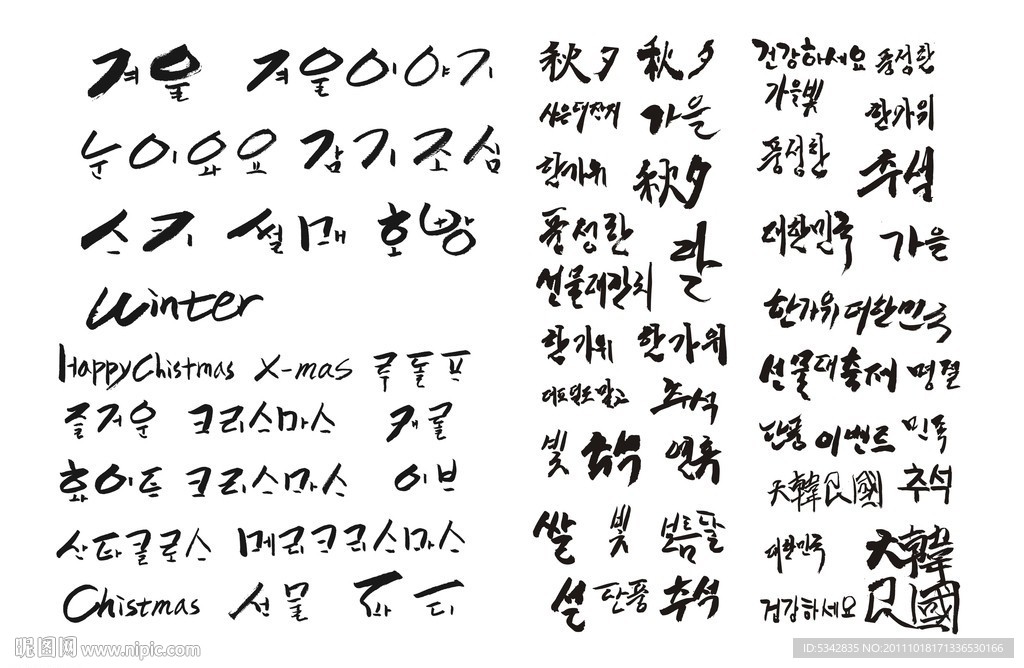 겨울 겨울이야기
눈이와요 감기조심
스키 썰매 호빵
Winter
Happy Chistmas X-mas 루돌프
즐거운 크리스마스 캐롤
화이트 크리스마스 이브
산타클로스 메리크리스마스
Chistmas 선물 파티
秋夕 秋夕
가을
한가위 秋夕
풍성한 달
선물대잔치
한가위 한가위
추석
빛 추석 연휴
쌀 빛 보름달
설 단풍 추석
건강하세요 풍성한
가을빛 한가위
풍성한 추설
대한민국 가을
한가위 대한민국
선물대축제 명절
단풍 이벤트 민속
大韓民國 추석
대한민국 大韓
건강하세요 民國
昵图网 www.nipic.com
ID:5342835 NO:20111018171336530166